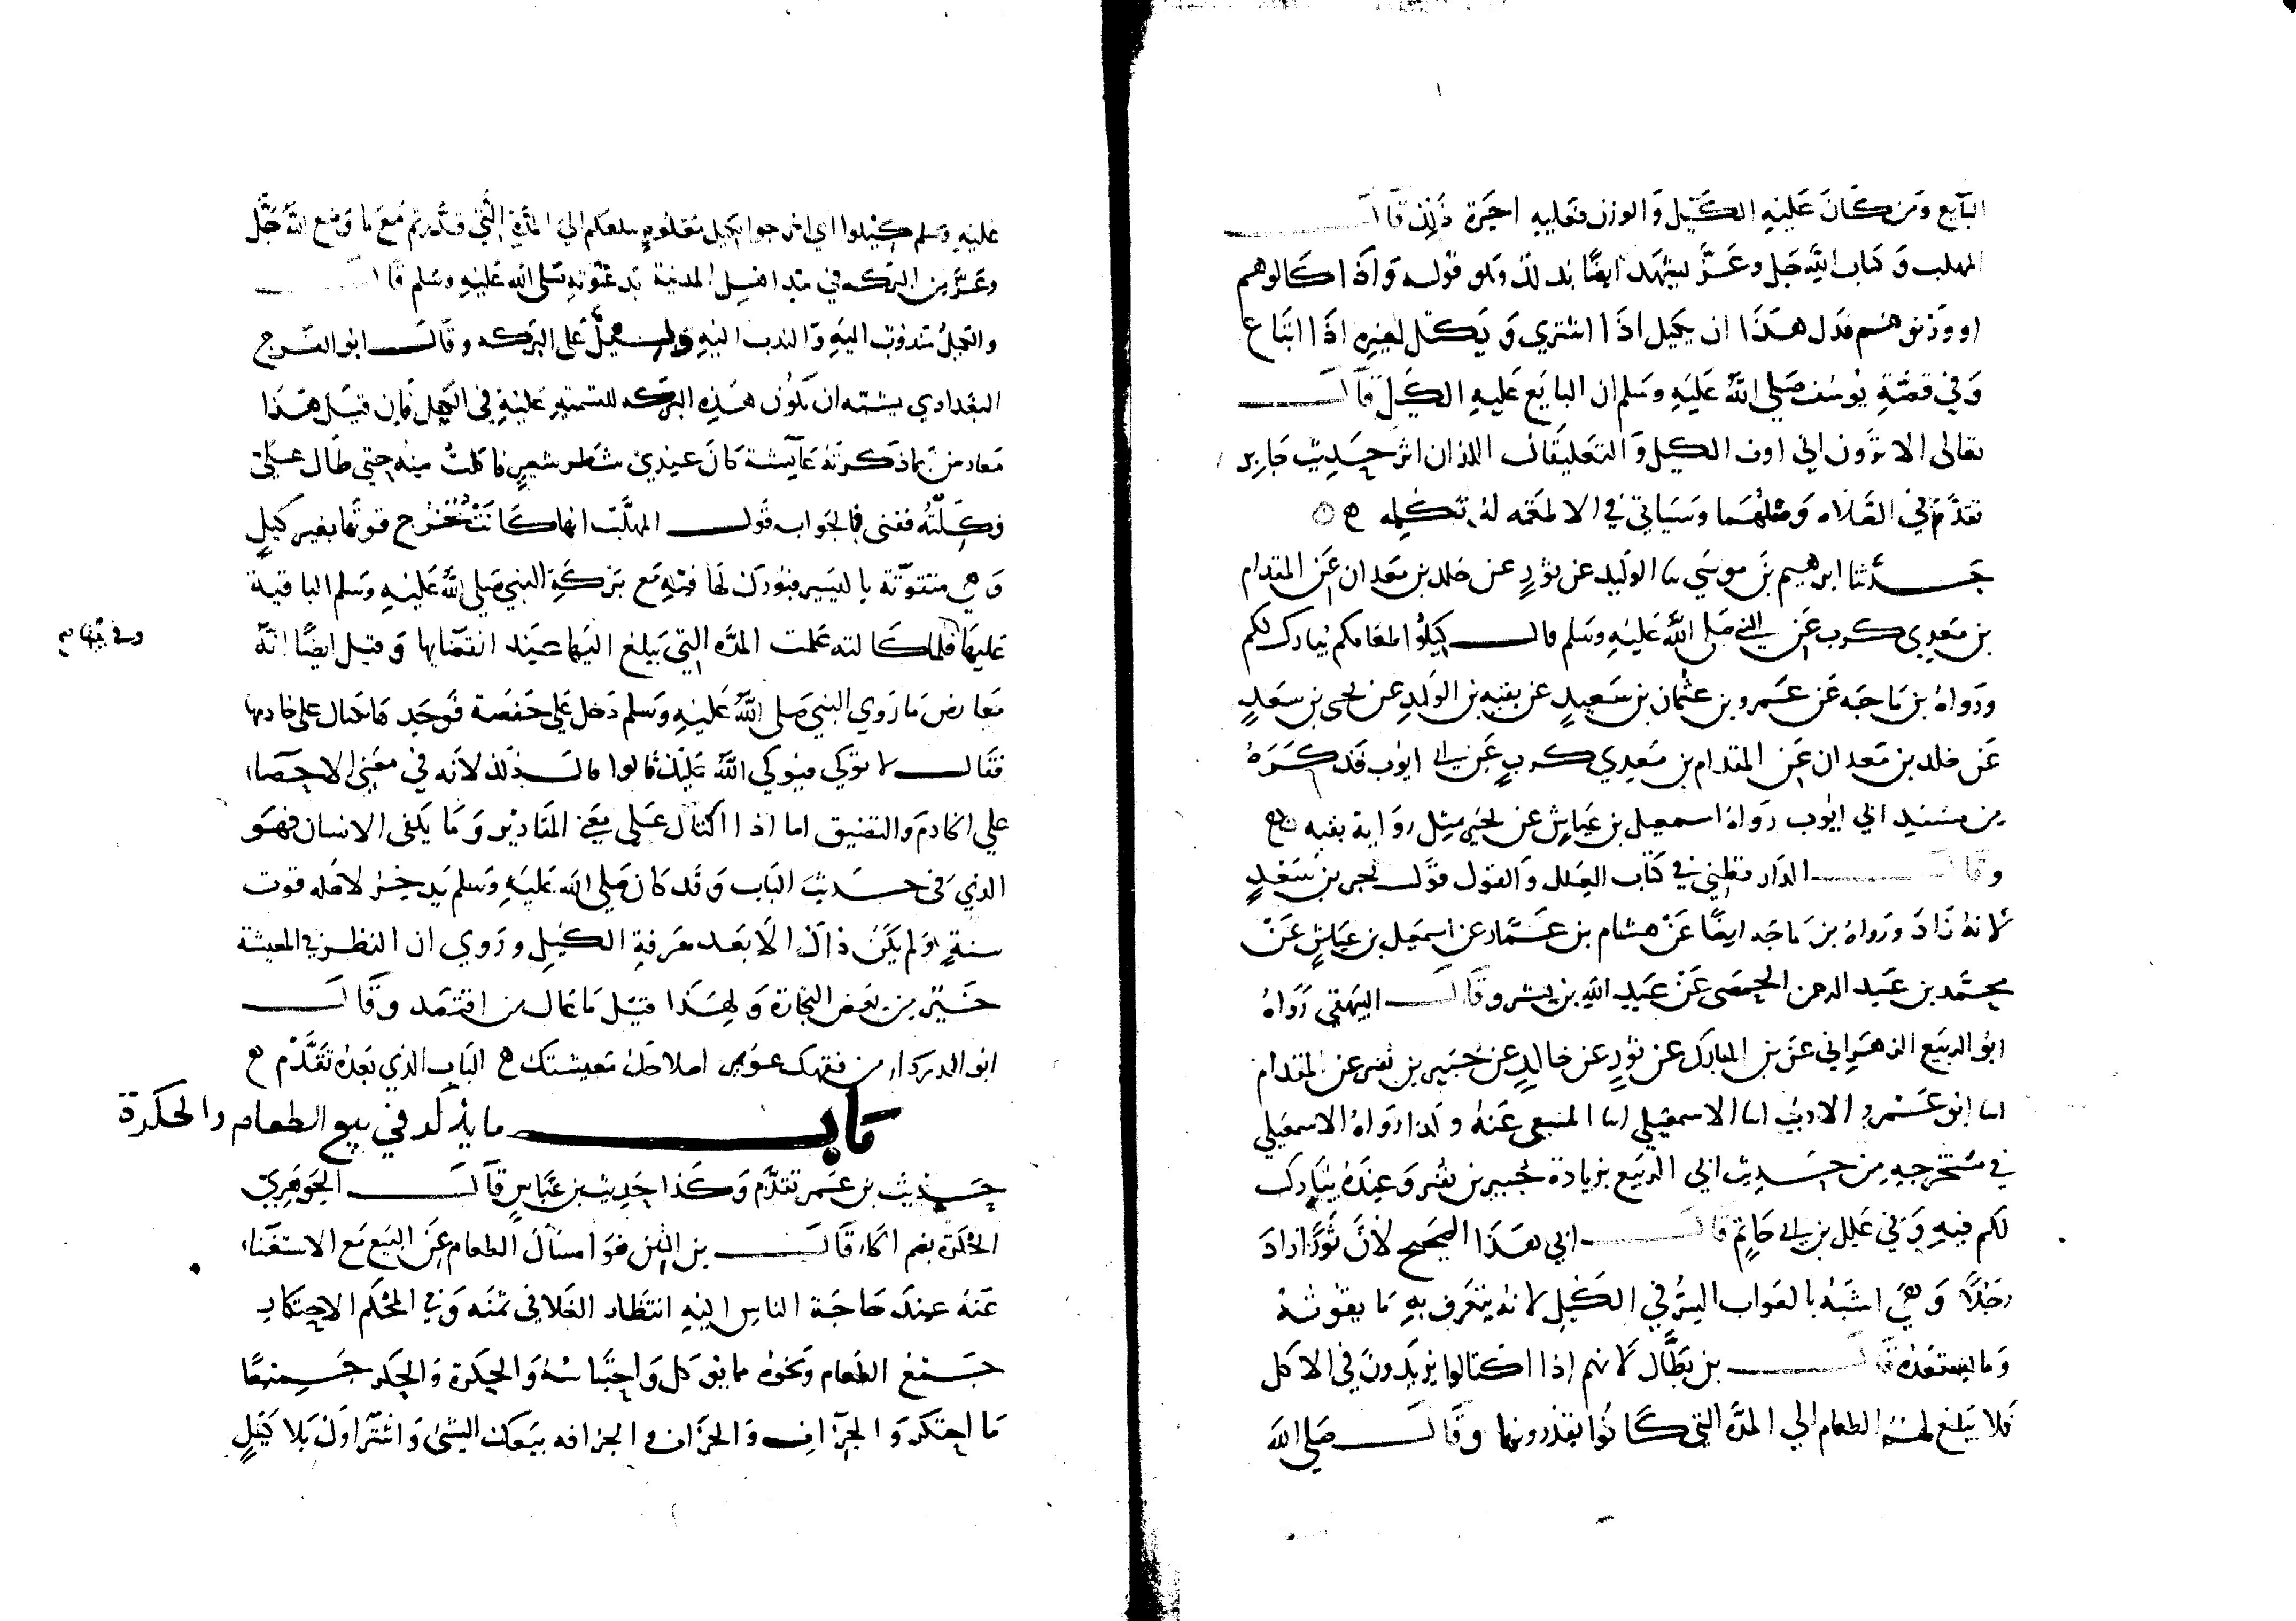 البايع ومن كان عليه الكيل والوزن فعليه اجرة ذلك قال
المهلب وكتاب الله جل وعز يشهد ايضا بذلك وهو قوله واذا كالوهم
او وزنوهم فدل هذا ان يكيل اذا اشتري ويكتل لغيره اذا ابتاع
وفي قصة يوسف صلي الله عليه وسلم ان البايع عليه الكيل قال
تعالى الا ترون اني اوف الكيل والتعليقان اللذان اثر حديث جابر
تقدم في الصلاه ومثلهما وسياتي في الاطعمه له تكمله
حدثنا ابرهيم بن موسي نا الوليد عن ثور عن خلد بن معدان عن المقدام
بن معدي كرب عن النبي صلي الله عليه وسلم قال كيلوا طعامكم يبارك لكم
ورواه بن ماجه عن عمرو بن عثمان بن سعيد عن بقيه بن الوليد عن بحير بن سعد
عن خلد بن معدان عن المقدام بن معدي كرب عن ابي ايوب فذكره
من مسند ابي ايوب رواه اسمعيل بن عياش عن بحير مثل رواية بقيه
وقال الدارقطني في كتاب العلل والقول قول بحير بن سعد
لانه زاد ورواه بن ماجه ايضا عن هشام بن عمار عن اسمعيل بن عياش عن
محمد بن عبد الرحمن الحمصي عن عبد الله بن بسر وقال البيهقي رواه
ابو الربيع الزهراني عن بن المبارك عن ثور عن خالد عن جبير بن نفير عن المقدام
انا ابو عمرو الاديب انا الاسمعيلي انا المنيعي عنه وكذا رواه الاسمعيلي
في مستخرجه من حديث ابي الربيع بزيادة جبير بن نفير وعنده يبارك
لكم فيه وفي علل بن ابي حاتم قال ابي هذا الصحيح لان ثورا زاد
رجلا وهي اشبه بالصواب السر في الكيل لانه يتعرف به ما يقوته
وما يستعده قال بن بطال لانهم اذا اكتالوا يزيدون في الاكل
فلا يبلغ لهم الطعام الي المدة التي كانوا يقدرونها وقال صلي الله
عليه وسلم كيلوا اي اخرجوا بكيل معلوم يبلغكم الي المدة التي قدرتم مع ما وضع الله جل
وعز من البركه في مد اهل المدينة بدعوته صلي الله عليه وسلم قال
والكيل مندوب اليه والندب اليه يحمل علي البركه وقال ابو الفرج
البغدادي يشبه ان تكون هذه البركه للتسميه عليه في الكيل فان قيل هذا
معارض بما ذكرته عايشة كان عندي شطر شعير فاكلت منه حتي طال علي
فكلته ففني فالجواب قول المهلب انها كانت تخرج قوتها بغير كيل
وهي متقوتة باليسير فبورك لها فيه مع بركة النبي صلي الله عليه وسلم الباقية
عليها فلما كالته علمت المدة التي يبلغ اليها عند انقضايها وقيل ايضا انه
معارض ما روي النبي صلي الله عليه وسلم دخل علي حفصة فوجدها تكتال علي خادمها
فقال لا توكي فيوكي الله عليك قالوا قال ذلك لانه في معني الاحصاء
علي الخادم والتضييق اما اذا اكتال علي معني المقادير وما يكفي الانسان فهو
الذي في حديث الباب وقد كان صلي الله عليه وسلم يدخر لاهله قوت
سنة ولم يكن ذلك الا بعد معرفة الكيل وروي ان النظر في المعيشة
خير من بعض التجارة ولهذا قيل ما عال من اقتصد وقال
ابو الدرداء من فقهك عويمر اصلاحك معيشتك الباب الذي بعده تقدم
باب ما يذكر في بيع الطعام والحكرة
حديث بن عمر تقدم وكذا حديث بن عباس قال الجوهري
الحكرة بضم الحاء قال بن التين هو امساك الطعام عن البيع مع الاستغناء
عنه عند حاجة الناس اليه انتظار الغلا في ثمنه وفي المحكم الاحتكار
جمع الطعام ونحوه مما يوكل واحتباسه والحكرة والحكر جميعا
ما احتكر والجزاف والجزاف والجزافه بيعك الشي واشتراوك بلا كيل